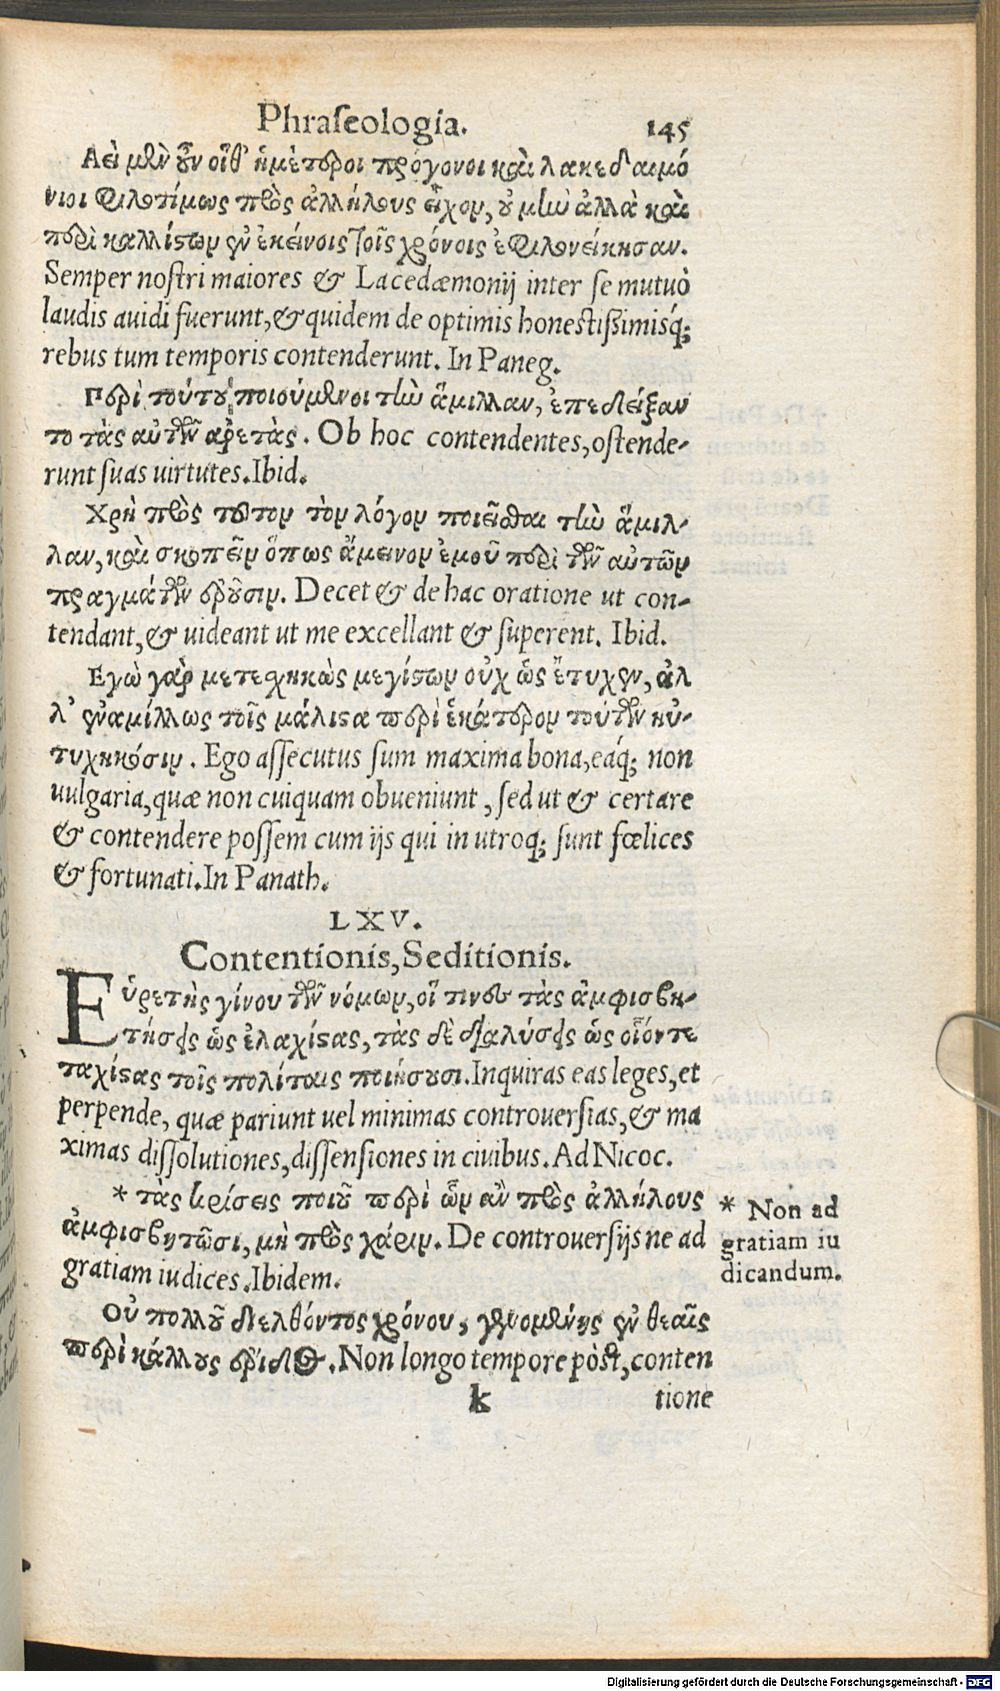 Phraseologia. 145
Αεὶ μὲν οὖν οἵθ' ἡμέτεροι πρόγονοι καὶ λακεδαιμό
νιοι φιλοτίμως πρὸς ἀλλήλους εἶχον, οὐ μὴν ἀλλὰ καὶ
περὶ καλλίστων ἐν ἐκείνοις τοῖς χρόνοις ἐφιλονείκησαν.
Semper nostri maiores & Lacedæmonij inter se mutuò
laudis auidi fuerunt, & quidem de optimis honestissimisq́;
rebus tum temporis contenderunt. In Paneg.
Περὶ τούτου ποιούμενοι τὴν ἅμιλλαν, ἐπεδείξαν
το τὰς αὐτῶν ἀρετὰς. Ob hoc contendentes, ostende-
runt suas uirtutes. Ibid.
Χρὴ πρὸς τοῦτον τὸν λόγον ποιεῖσθαι τὴν ἅμιλ-
λαν, καὶ σκοπεῖν ὅπως ἄμεινον ἐμοῦ περὶ τῶν αὐτῶν
πραγμάτων ἐροῦσιν. Decet & de hac oratione ut con-
tendant, & uideant ut me excellant & superent. Ibid.
Εγὼ γὰρ μετεχηκὼς μεγίστων οὐχ ὡς ἔτυχεν, ἀλ
λ' ἐναμίλλως τοῖς μάλιστα περὶ ἑκάτερον τούτων ηὐ-
τυχηκόσιν. Ego assecutus sum maxima bona, eaq́; non
uulgaria, quæ non cuiquam obueniunt, sed ut & certare
& contendere possem cum ijs qui in utroq; sunt fœlices
& fortunati. In Panath.
LXV.
Contentionis, Seditionis.
Εὑρετὴς γίνου τῶν νόμων, οἵ τινες τὰς ἀμφισβη-
τήσεις ὡς ἐλαχίστας, τὰς δὲ διαλύσεις ὡς οἷόντε
ταχίστας τοῖς πολίταις ποιήσουσι. Inquiras eas leges, et
perpende, quæ pariunt uel minimas controuersias, & ma
ximas dissolutiones, dissensiones in ciuibus. Ad Nicoc.
* τὰς κρίσεις ποιοῦ περὶ ὧν ἂν πρὸς ἀλλήλους
ἀμφισβητῶσι, μὴ πρὸς χάριν. De controuersijs ne ad
gratiam iudices. Ibidem.
* Non ad
gratiam iu
dicandum.
Οὐ πολλοῦ διελθόντος χρόνου, γενομένης ἐν θεαῖς
περὶ κάλλους ἔριδος. Non longo tempore pòst, conten
k tione
Digitalisierung gefördert durch die Deutsche Forschungsgemeinschaft - DFG